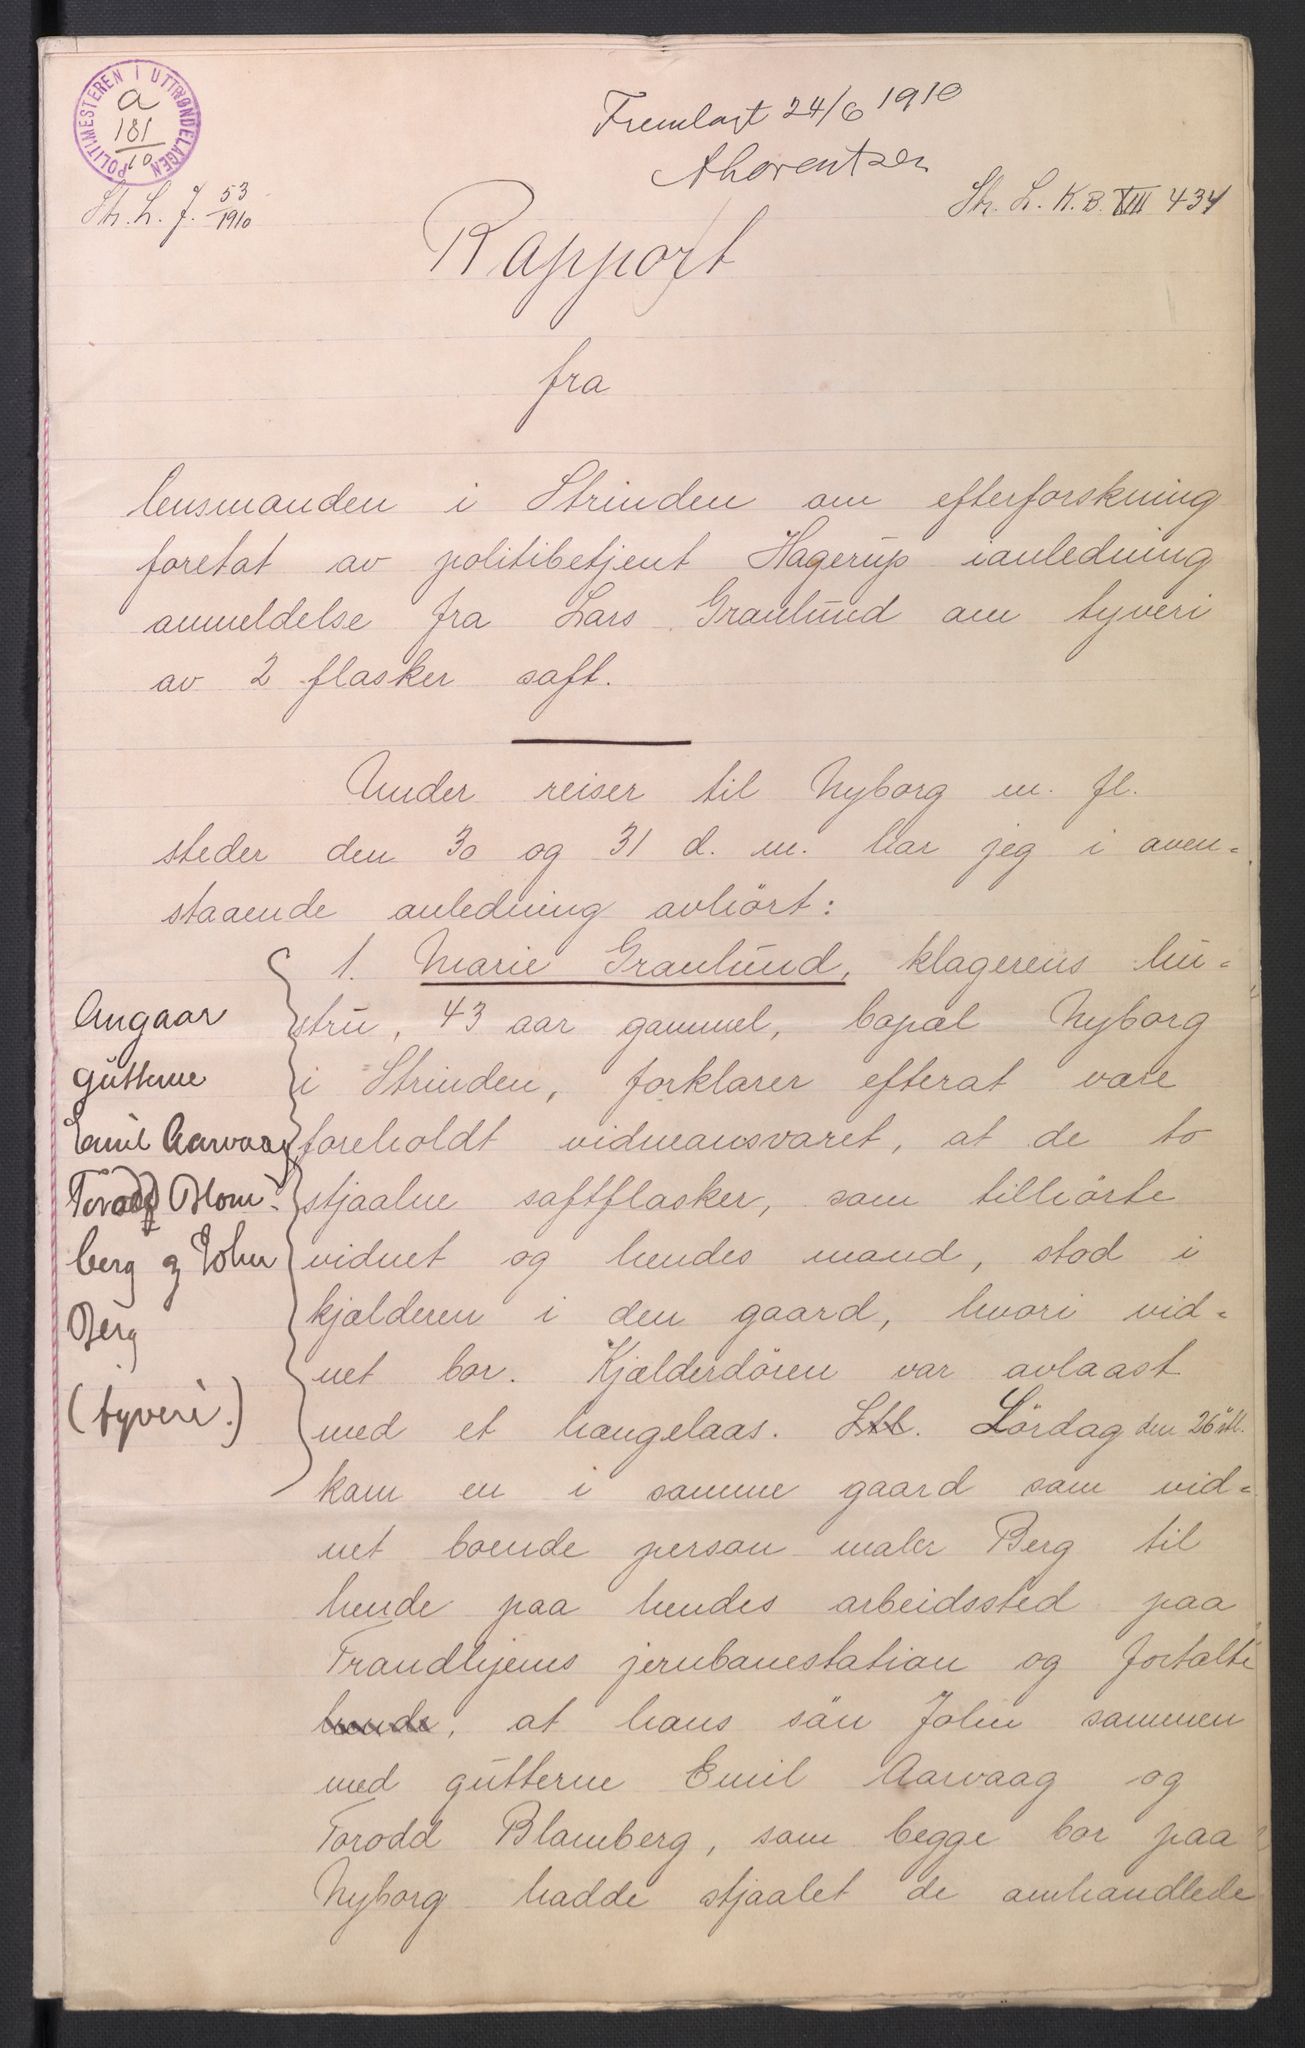 POLITIMESTEREN I UTTRØNDELAGEN
a
181
10
Fremlagt 24/6 1910
AhorentZen
Str. L. J. 53/1910
Str. L. K.B. XIII 434
Rapport
fra
lensmanden i Strinden om efterforskning
foretat av politibetjent Hagerup ianledning
anmeldelse fra Lars Granlund om tyveri
av 2 flasker saft.
Under reiser til Nyborg m. fl.
steder den 30 og 31 d. m. har jeg i oven-
staaende anledning avhört:
1. Marie Granlund, klagerens hu-
stru, 43 aar gammel, bopæl Nyborg
i Strinden, forklarer efterat være
foreholdt vidneansvaret, at de to
stjaalne saftflasker, som tilhörte
vidnet og hendes mand, stod i
kjælderen i den gaard, hvori vid-
net bor. Kjælderdören var avlaast
med et hængelaas. Lördag den 26 ds.
kom en i samme gaard som vid-
net boende person maler Berg til
hende paa hendes arbeidssted paa
Trondhjems jernbanestation og fortalte
hende, at hans sön John sammen
med gutterne Emil Aarvaag og
Torodd Blomberg, som begge bor paa
Nyborg hadde stjaalet de omhandlede
Angaar
gutterne
Emil Aarvaag,
Torodd Blom-
berg og John
Berg
(tyveri.)